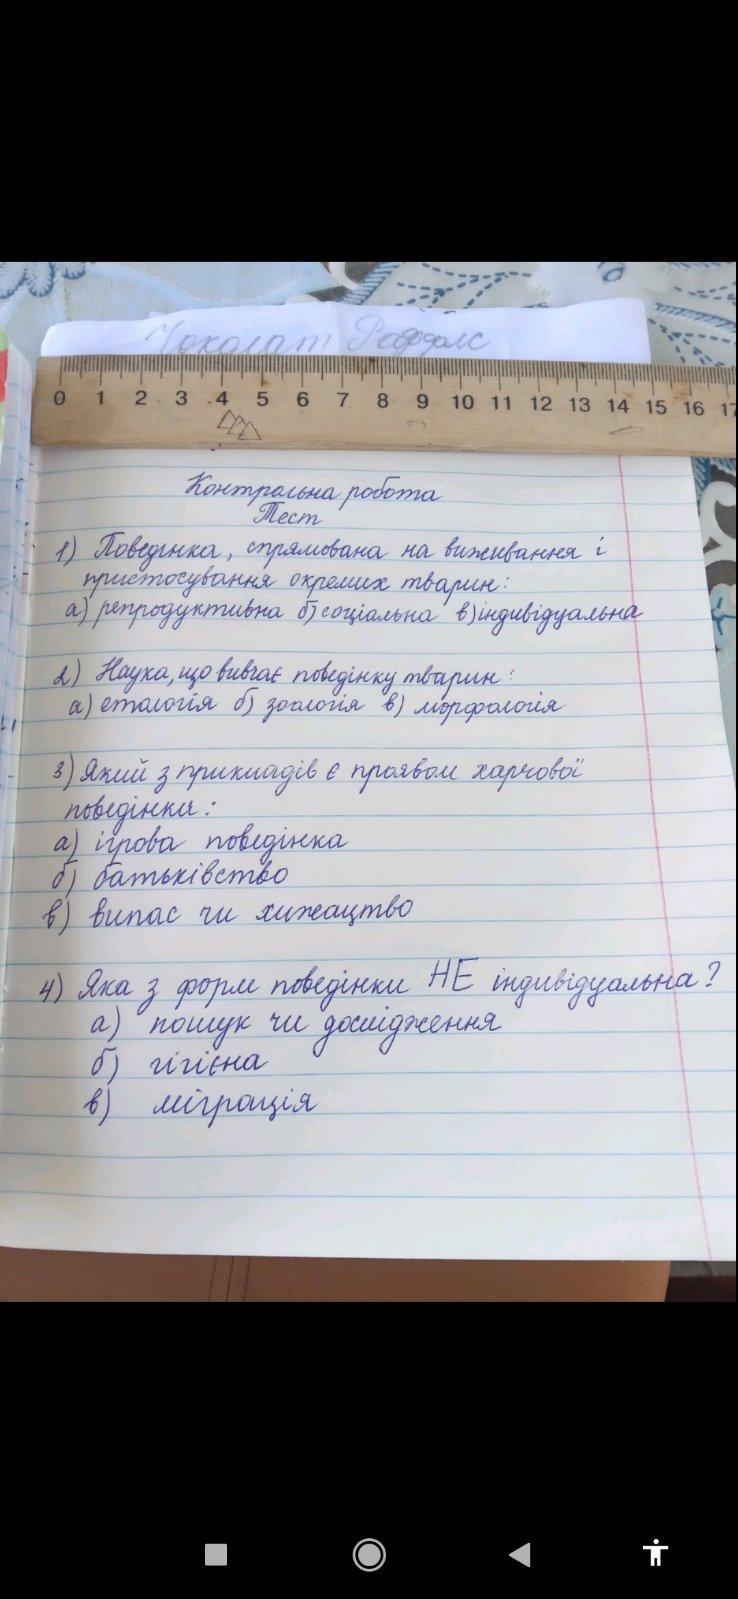 Чоколат Раффлс
0 1 2 3 4 5 6 7 8 9 10 11 12 13 14 15 16 17
Контрольна робота
Тест
1) Поведінка, спрямована на виживання і
пристосування окремих тварин:
а) репродуктивна б) соціальна в) індивідуальна
2) Наука, що вивчає поведінку тварин:
а) етологія б) зоологія в) морфологія
3) Який з прикладів є проявом харчової
поведінки:
а) ігрова поведінка
б) батьківство
в) випас чи хижацтво
4) Яка з форм поведінки НЕ індивідуальна?
а) пошук чи дослідження
б) гігієна
в) міграція